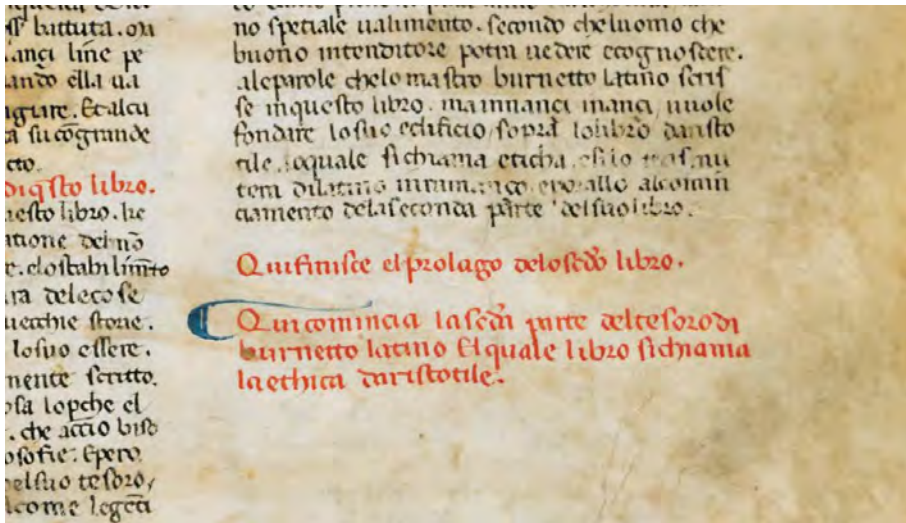 battuta . ma
nançi line pe
ando ella ua
Et alcu
a su cōgrande
cto.
diq̄sto libro.
uesto libro. he
atione del nō
e. elostabilim̄to
ra delecose
uecchie storie.
losuo essere.
mente scritto.
osa lopche el
. che accio biso
osofie. Epero.
elsuo tesoro,
come legeti
no speciale ualimento. secondo cheluomo che
buono intenditore potra uedere ecognoscere.
aleparole chelo mastro burnetto latino scris
se inquesto libro. mainnanci inanci, uuole
fondare losuo edificio, sopra lolibro daristo
tile, loquale sichiama eticha,
dilatino alcomin
ciamento delaseconda parte delsuolibro.
Quifinisce elprolago delosecd̄o libro.
Quicomincia lasecd̄a parte deltesorodi
burnetto latino Elquale libro sichiama
laethica daristotile.